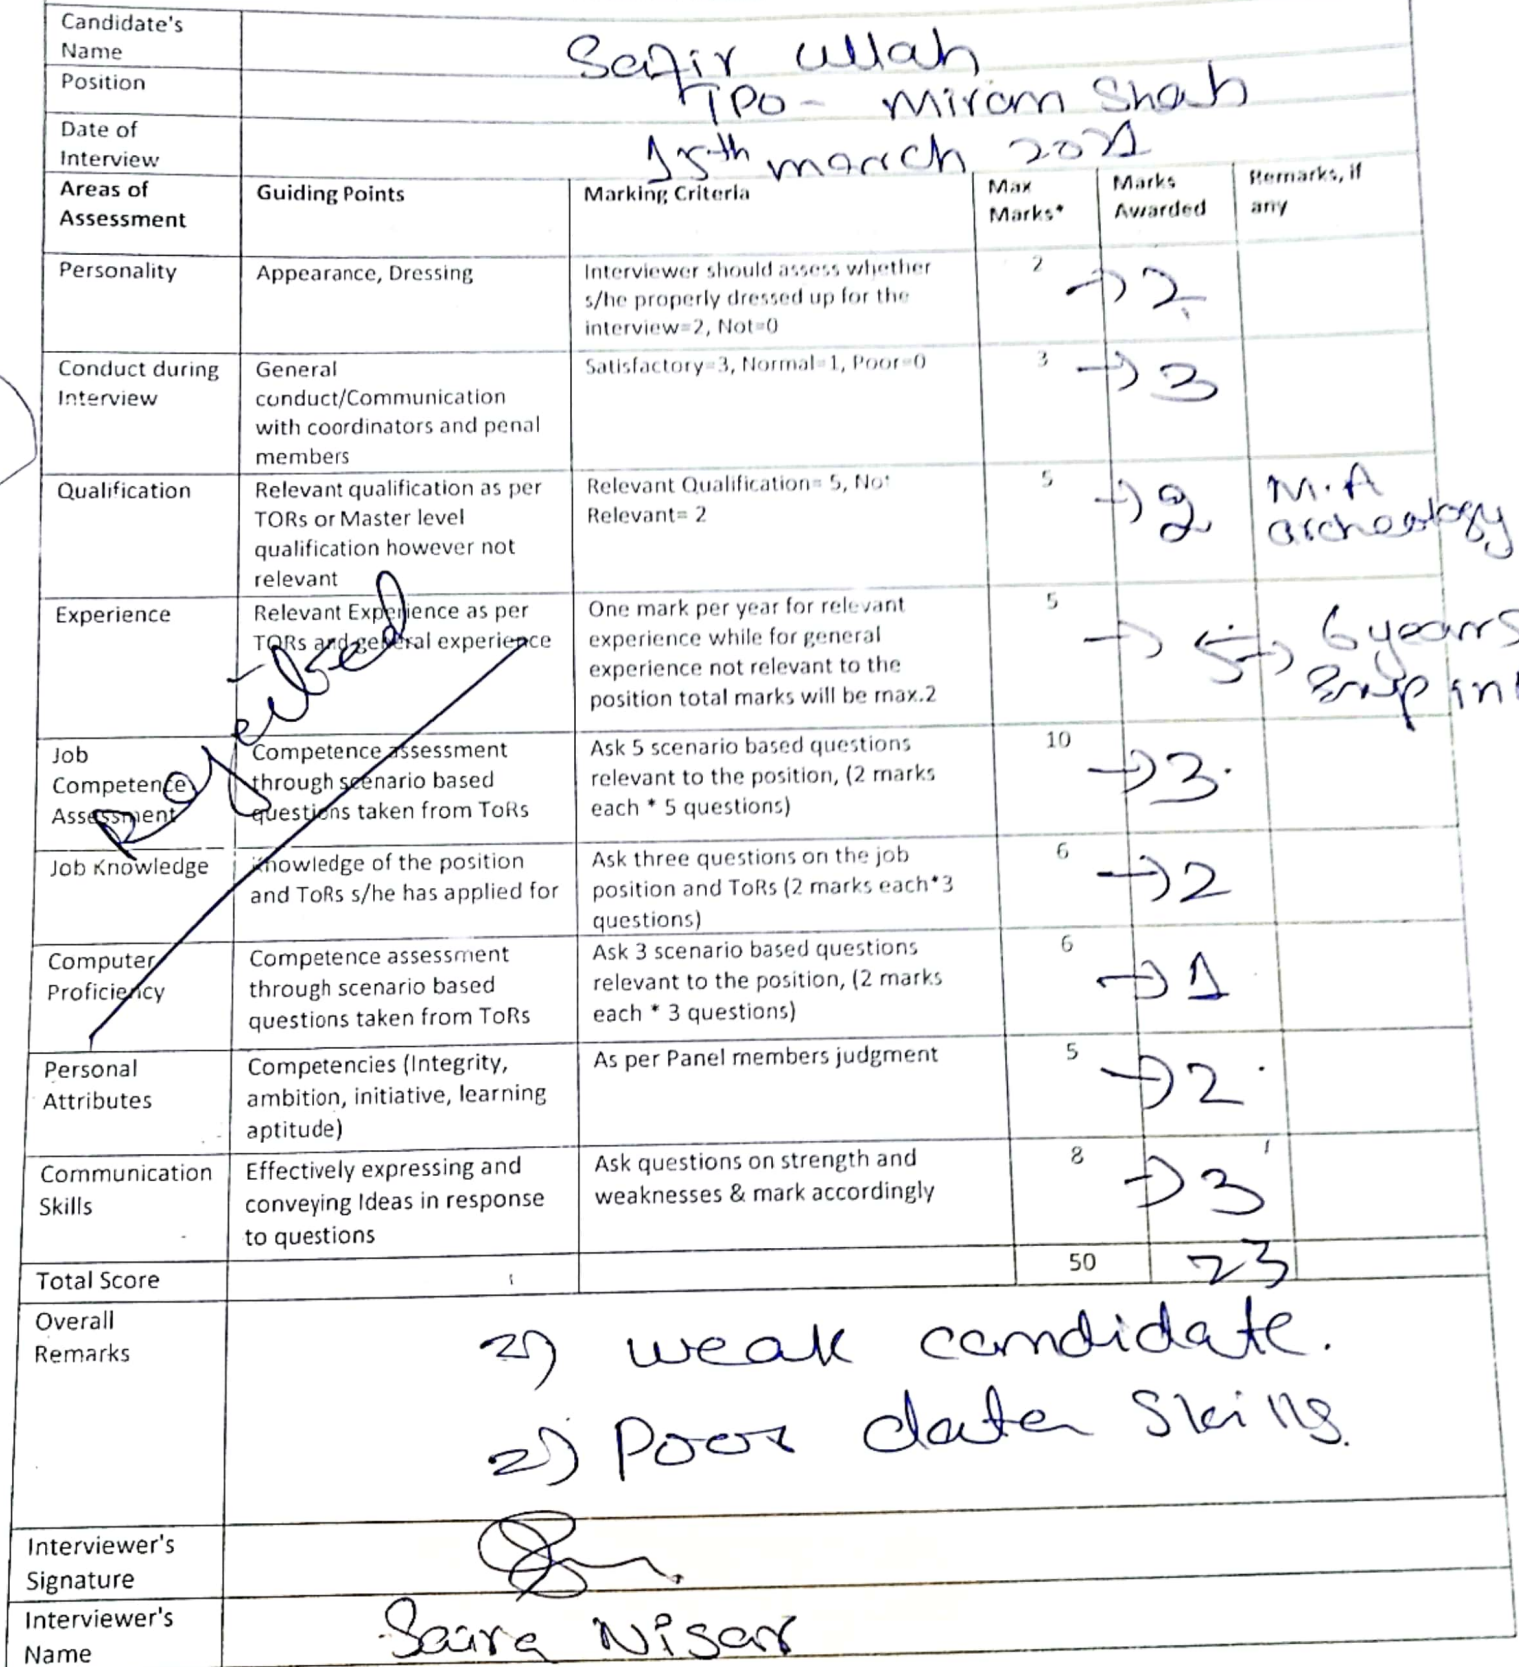 Candidate's
Name
Safir ullah
Position
TPO - Miram Shah
Date of
Interview
15th march 2021
Areas of
Assessment
Guiding Points
Marking Criteria
Max
Marks*
Marks
Awarded
Remarks, if
any
Personality
Appearance, Dressing
Interviewer should assess whether
s/he properly dressed up for the
interview=2, Not=0
2
→ 2
Conduct during
Interview
General
conduct/Communication
with coordinators and penal
members
Satisfactory=3, Normal=1, Poor=0
3
→ 3
Qualification
Relevant qualification as per
TORs or Master level
qualification however not
relevant
Relevant Qualification= 5, Not
Relevant= 2
5
→ 2
M.A
archeology
Experience
Relevant Experience as per
TORs and general experience
One mark per year for relevant
experience while for general
experience not relevant to the
position total marks will be max.2
5
→ 5 → 6 years
in
Rejected
Job
Competence
Assessment
Competence assessment
through scenario based
questions taken from ToRs
Ask 5 scenario based questions
relevant to the position, (2 marks
each * 5 questions)
10
→ 3
Job Knowledge
Knowledge of the position
and ToRs s/he has applied for
Ask three questions on the job
position and ToRs (2 marks each*3
questions)
6
→ 2
Computer
Proficiency
Competence assessment
through scenario based
questions taken from ToRs
Ask 3 scenario based questions
relevant to the position, (2 marks
each * 3 questions)
6
→ 1
Personal
Attributes
Competencies (Integrity,
ambition, initiative, learning
aptitude)
As per Panel members judgment
5
→ 2
Communication
Skills
Effectively expressing and
conveying Ideas in response
to questions
Ask questions on strength and
weaknesses & mark accordingly
8
→ 3
Total Score
50
23
Overall
Remarks
weak candidate.
2) Poor data Skills.
Interviewer's
Signature
Interviewer's
Name
Saira Nisar